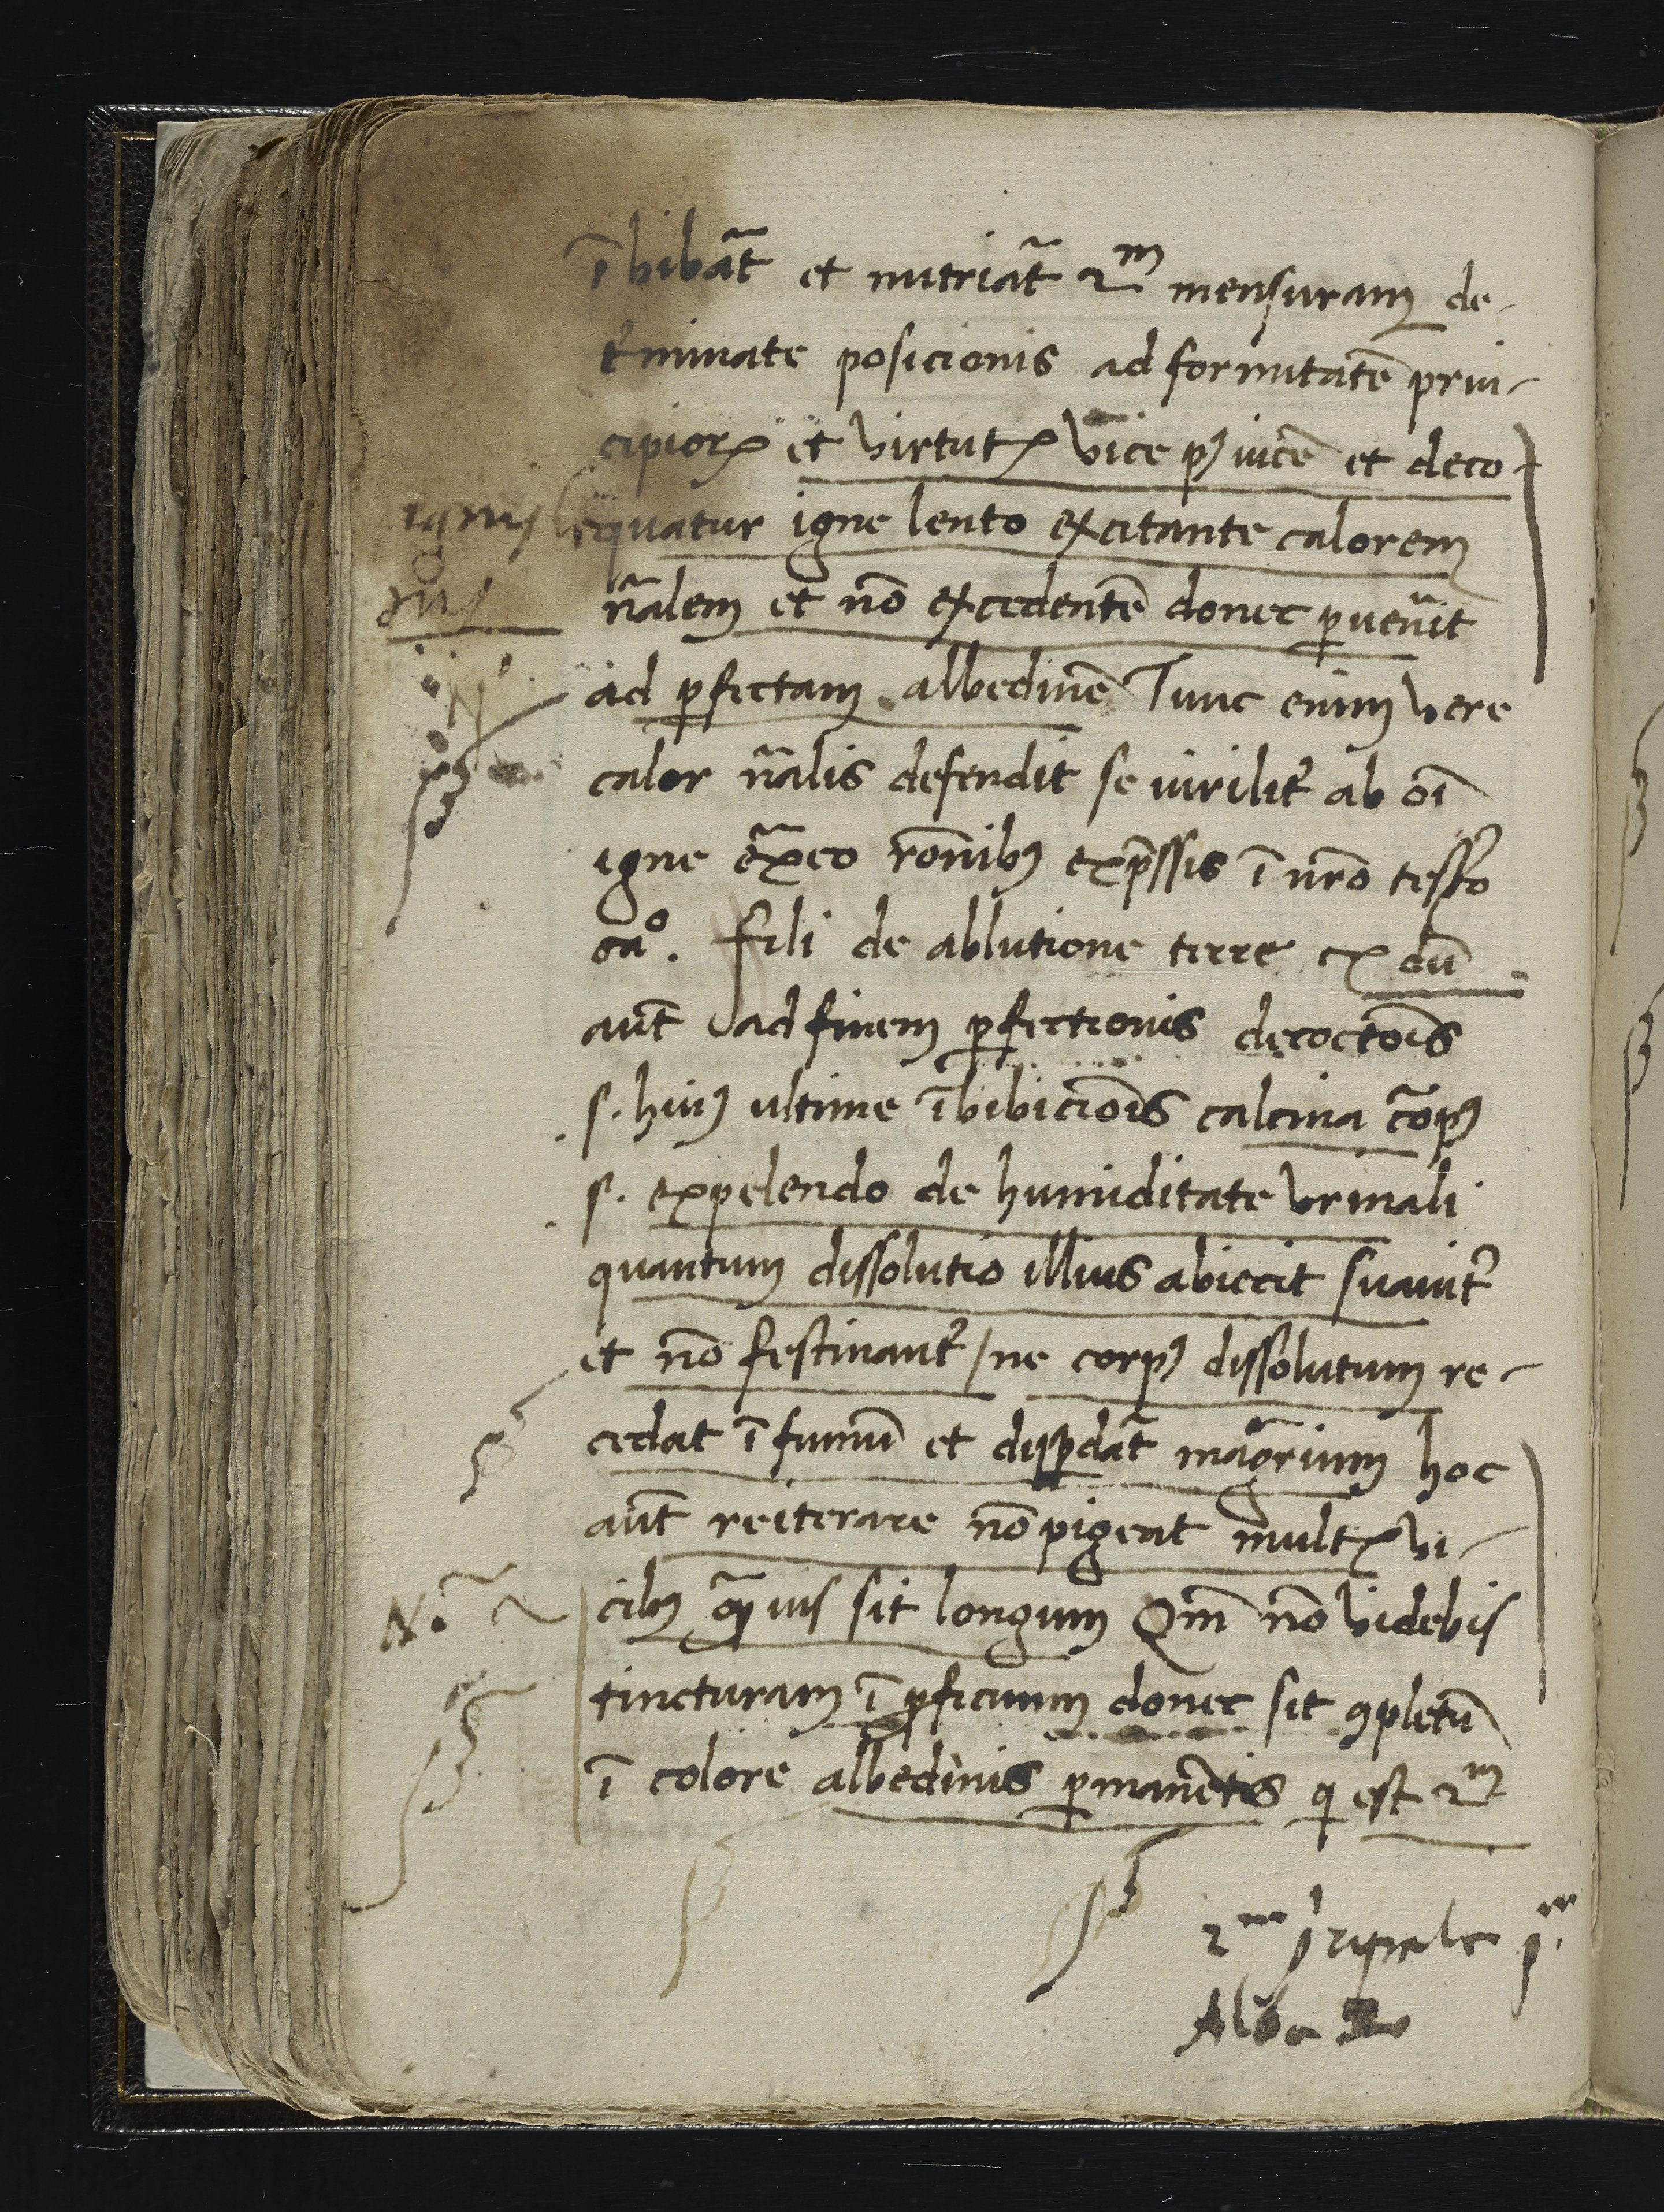 ībibāt et nutriāt 2m mensuram de-
t'minate posicionis ad formitatē prin-
cipioꝝ et virtutꝝ vice pꝰ vicē et deco-
quatur igne lento excitante calorem
ignis le
nꝰ
nālem et nō excedentē donec ꝑuenīt
ad ꝑfectam albedinē Tunc enim vere
calor nālis defendit se virilit' ab oī
igne ex̄neo rōnibꝰ exp̄ssis ī nrō testō
caº. fili de ablutione terre ex dū
aūt ad finem ꝑfectionis decoctōis
s. huiꝰ ultime ībibiciōis calcina cōpꝰ
s. expelendo de humiditate urinali
quantum dissolutio illius abiecit suauit'
et nō festinant' / ne corpꝰ dissolutum re-
cedat ī fumū et disꝑdāt magr̄ium hoc
aūt reiterare nō pigeat multꝝ vi-
Nº
cibꝰ qꝫuis sit longum Qm̄ nō videbis
tincturam ī ꝑficuum donec sit ꝯpletū
ī colore albedinis ꝑmanētis q est 2m
2m pricipale pm
Alba